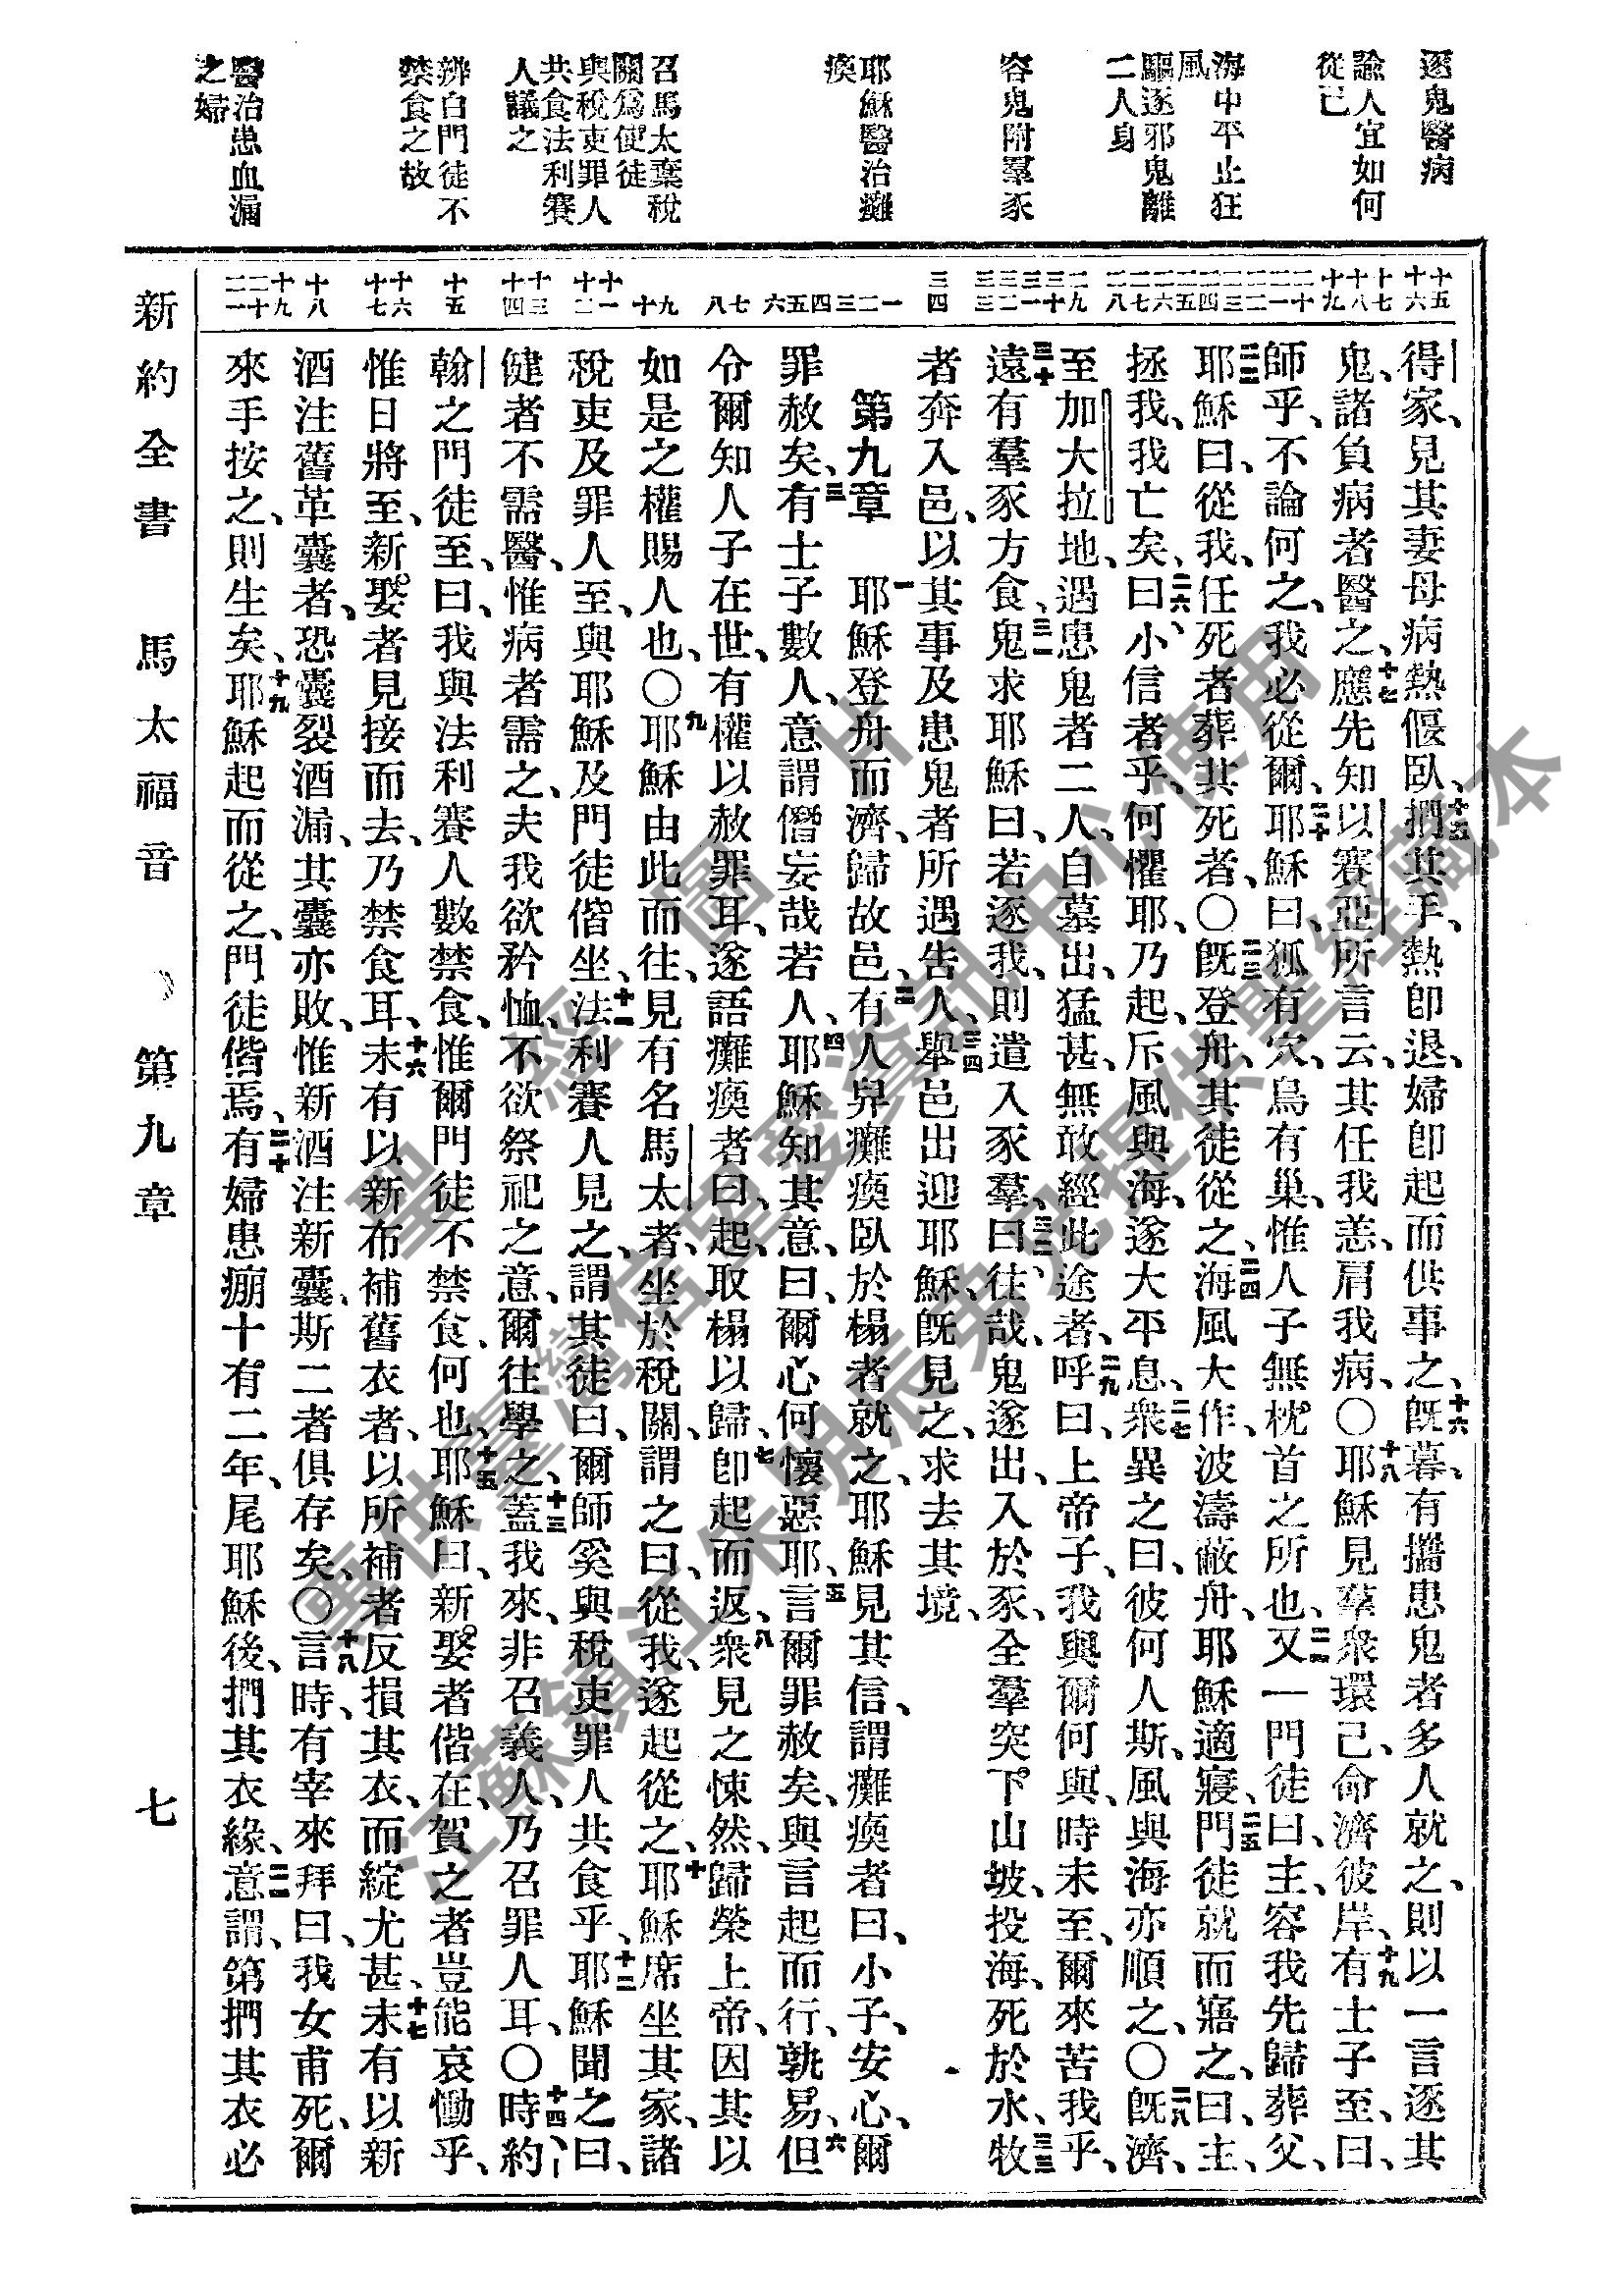 逐鬼醫病
諭人宜如何
從己
海中平止狂
風
驅逐邪鬼離
二人身
容鬼附羣豕
耶穌醫治癱
瘓
召馬太棄稅
關爲使徒
與稅吏罪人
共食法利賽
人議之
辨白門徒不
禁食之故
醫治患血漏
之婦
十五 十六
十七 十八 十九
二十 二一 二二
二三 二四 二五
二六 二七 二八
二九 三十 三一
三二 三三
三四
一 二 三
四 五 六
七 八
九 十
十一 十二
十三 十四
十五
十六 十七
十八
十九 二十 二一
得家、見其妻母病熱偃臥、十五捫其手、熱卽退、婦卽起而供事之、十六旣暮、有攜患鬼者多人就之、則以一言逐其
鬼、諸負病者醫之、十七應先知以賽亞所言云、其任我恙、肩我病、〇十八耶穌見羣衆環己、命濟彼岸、十九有士子至、曰、
師乎、不論何之、我必從爾、二十耶穌曰、狐有穴、鳥有巢、惟人子無枕首之所也、二一又一門徒曰、主、容我先歸葬父、
二二耶穌曰、從我、任死者葬其死者、〇二三旣登舟、其徒從之、二四海風大作、波濤蔽舟、耶穌適寢、二五門徒就而寤之、曰、主、
拯我、我亡矣、二六曰、小信者乎、何懼耶、乃起、斥風與海、遂大平息、二七衆異之曰、彼何人斯、風與海亦順之、〇二八旣濟、
至加大拉地、遇患鬼者二人、自墓出、猛甚、無敢經此途者、二九呼曰、上帝子、我與爾何與、時未至、爾來苦我乎、
三十遠有羣豕方食、三一鬼求耶穌曰、若逐我、則遣入豕羣、三二曰、往哉、鬼遂出、入於豕、全羣突下山坡、投海、死於水、三三牧
者奔入邑、以其事及患鬼者所遇告人、三四舉邑出迎耶穌、旣見之、求去其境、
第九章 一耶穌登舟而濟、歸故邑、二有人舁癱瘓臥於榻者就之、耶穌見其信、謂癱瘓者曰、小子、安心、爾
罪赦矣、三有士子數人、意謂僭妄哉若人、四耶穌知其意、曰、爾心何懷惡耶、五言爾罪赦矣、與言起而行、孰易、六但
令爾知人子在世、有權以赦罪耳、遂語癱瘓者曰、起、取榻以歸、七卽起而返、八衆見之悚然、歸榮上帝、因其以
如是之權賜人也、〇九耶穌由此而往、見有名馬太者、坐於稅關、謂之曰、從我、遂起從之、十耶穌席坐其家、諸
稅吏及罪人至、與耶穌及門徒偕坐、十一法利賽人見之、謂其徒曰、爾師奚與稅吏罪人共食乎、十二耶穌聞之曰、
健者不需醫、惟病者需之、夫我欲矜恤、不欲祭祀之意、爾往學之、十三蓋我來、非召義人、乃召罪人耳、〇十四時、約
翰之門徒至、曰、我與法利賽人數禁食、惟爾門徒不禁食、何也、十五耶穌曰、新娶者偕在、賀之者豈能哀慟乎、
惟日將至、新娶者見接而去、乃禁食耳、十六未有以新布補舊衣者、以所補者反損其衣、而綻尤甚、十七未有以新
酒注舊革囊者、恐囊裂酒漏、其囊亦敗、惟新酒注新囊、斯二者俱存矣、〇十八言時、有宰來拜曰、我女甫死、爾
來手按之、則生矣、十九耶穌起而從之、門徒偕焉、二十有婦患痈十有二年、尾耶穌後、捫其衣緣、二一意謂、第捫其衣必
新約全書 馬太福音 第九章 七
聖經圖片
專供臺灣信望愛資訊中心使用
江蘇鎮江朱明辰弟兄提供聖經藏本